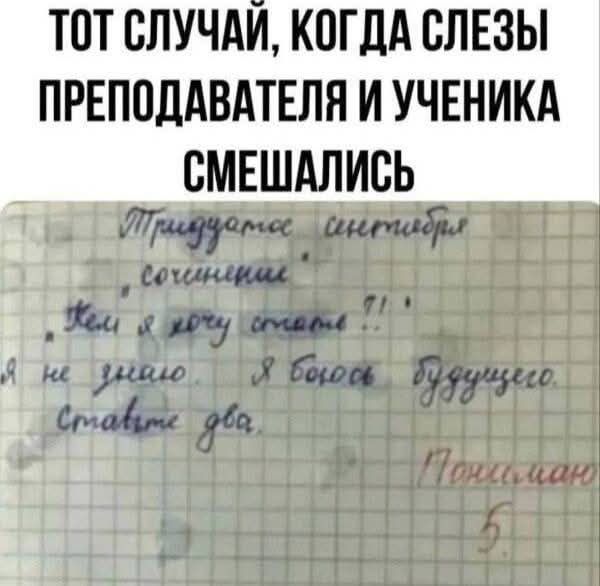 ТОТ СЛУЧАЙ, КОГДА СЛЕЗЫ
ПРЕПОДАВАТЕЛЯ И УЧЕНИКА
СМЕШАЛИСЬ
Тридцатое сентября
„Сочинение"
„Кем я хочу стать?!"
Я не знаю. Я боюсь будущего.
Ставьте два.
Понимаю
5.